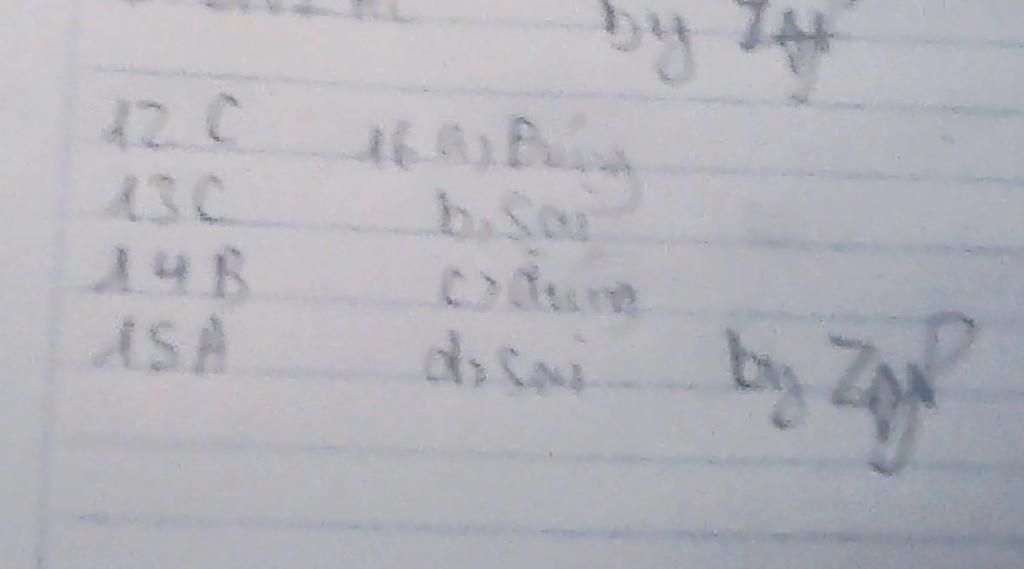 by
12 C 16 a, Đúng
13 C b, Sai
14 B c) đúng
15 A d, Sai by